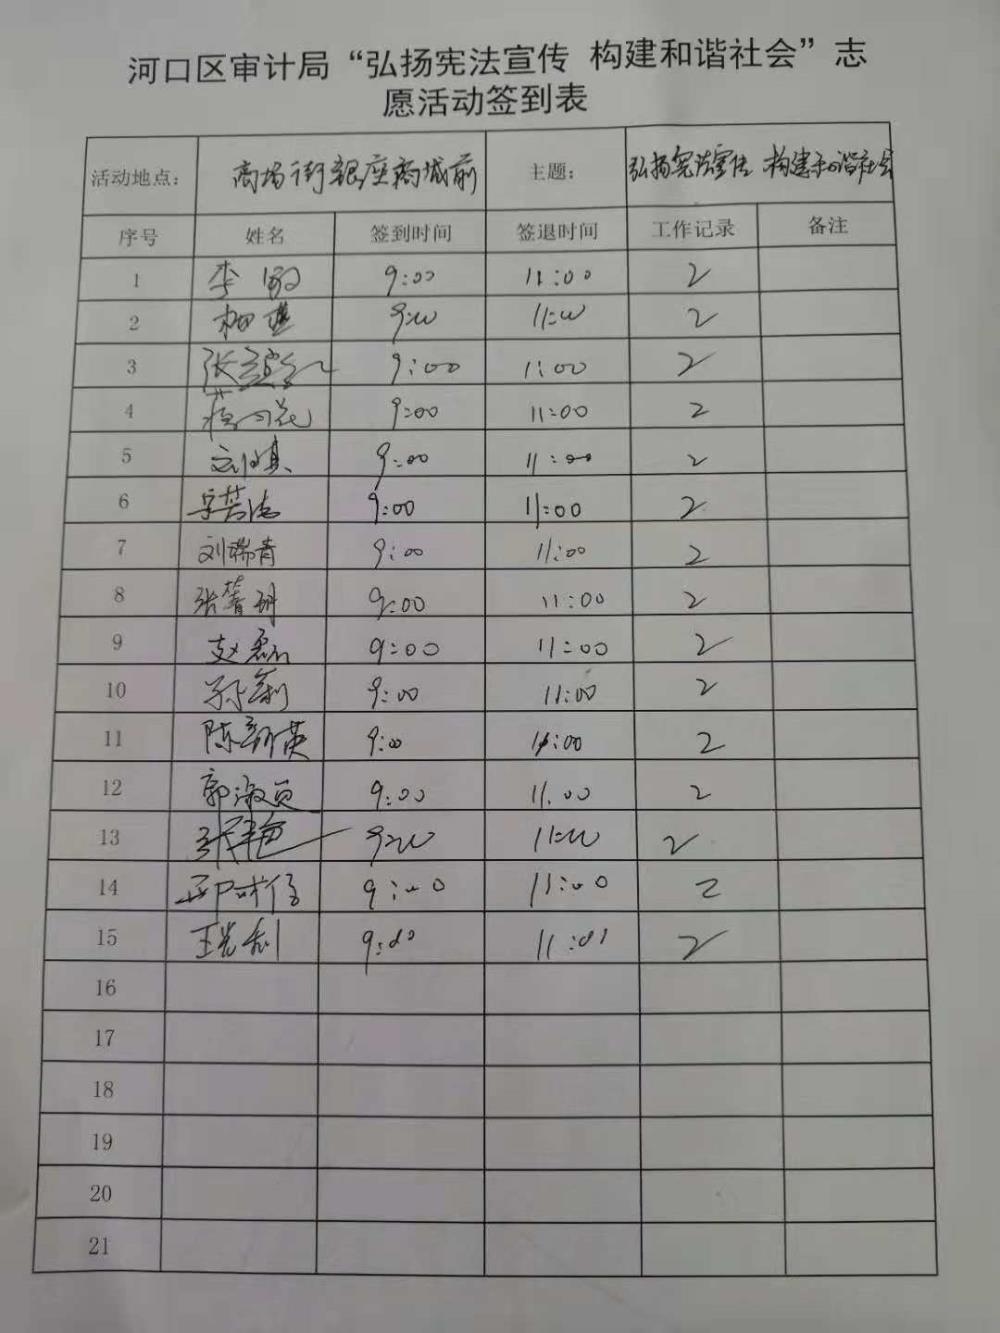 河口区审计局“弘扬宪法宣传 构建和谐社会”志
愿活动签到表
活动地点： 商场街银座商城前 主题： 弘扬宪法宣传 构建和谐社会
序号 姓名 签到时间 签退时间 工作记录 备注
1 李敏 9:00 11:00 2
2 9:00 11:00 2
3 张 9:00 11:00 2
4 9:00 11:00 2
5 刘 9:00 11:00 2
6 9:00 11:00 2
7 刘瑞青 9:00 11:00 2
8 张菁玥 9:00 11:00 2
9 赵磊 9:00 11:00 2
10 孙莉 9:00 11:00 2
11 陈新英 9:00 11:00 2
12 郭淑贞 9:00 11.00 2
13 张艳 9:00 11:00 2
14 9:00 11:00 2
15 王 9:00 11:01 2
16
17
18
19
20
21